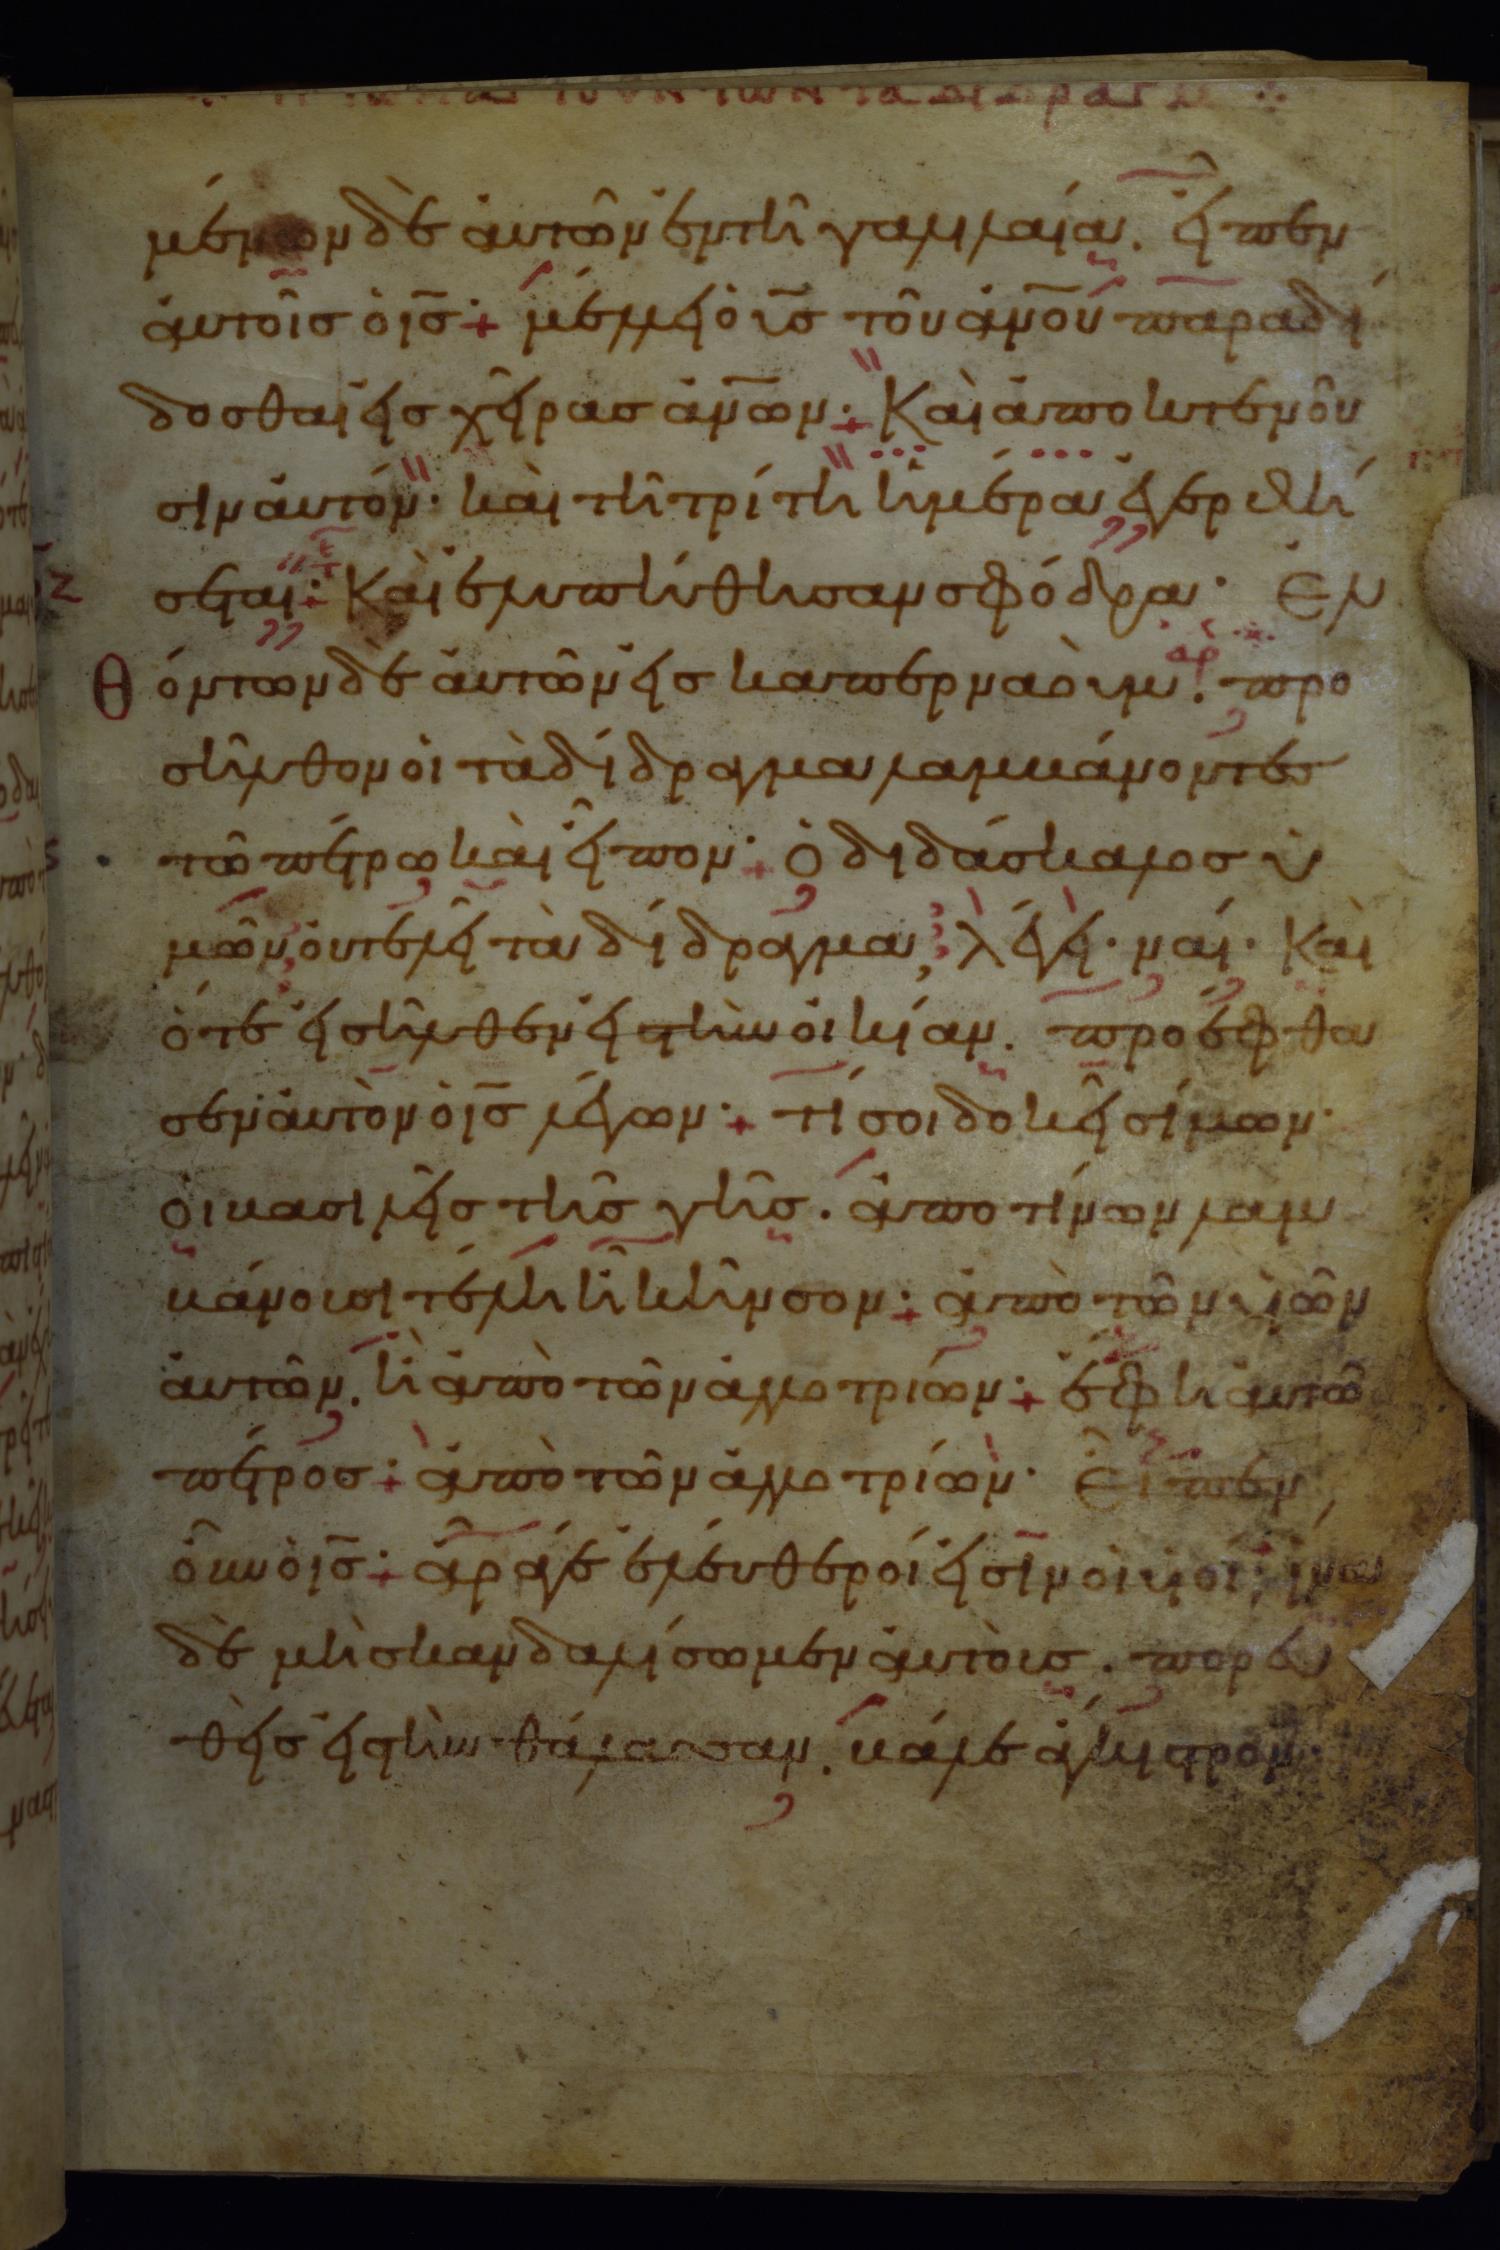 τῶν αἰτούντων τὰ δίδραγμα
μένων δὲ ἀυτῶν ἐν τῆ γαλιλαία. εἶπεν
ἀυτοῖς ὁ ις· μέλλει ὁ υς τοῦ ανου παραδί
δοσθαι εἰς χεῖρας ανων· Καὶ ἀποκτενοῦ
σιν ἀυτόν· καὶ τῆ τρίτη ἡμέρα ἐγερθή
σεται· Καὶ ἐλυπήθησαν σφόδρα· Ἐλ
θόντων δὲ ἀυτῶν εἰς καπερναοὺμ. προ
σῆλθον οἱ τὰ δίδραγμα λαμβάνοντες
τῶ πέτρω καὶ εἶπον· ὁ διδάσκαλος ὑ
μῶν ὀυ τελεῖ τὰ δίδραγμα; λέγει· ναί· Καὶ
ὅτε εἰσῆλθεν εἰς τὴν ὀικίαν. προέφθα
σεν ἀυτὸν ὁ ις λέγων· τί σοι δοκεῖ σίμων·
ὁι βασιλεῖς τῆς γῆς. ἀπο τίνων λαμ
βάνουσι τέλη ἢ κῆνσον· ἀπὸ τῶν υἱῶν
ἀυτῶν. ἢ ἀπὸ τῶν ἀλλοτρίων· ἔφη ἀυτῶ
πέτρος· ἀπὸ τῶν ἀλλοτρίων· Εἶπεν
ἀυτῶ ὁ ις· ἄραγε ἐλέυθεροί εἰσιν ὁι υἱοί; ἵνα
δὲ μὴ σκανδαλίσωμεν ἀυτοὺς. πορευ
θεὶς εἰς τὴν θάλασσαν. βάλε ἄγκιστρον·